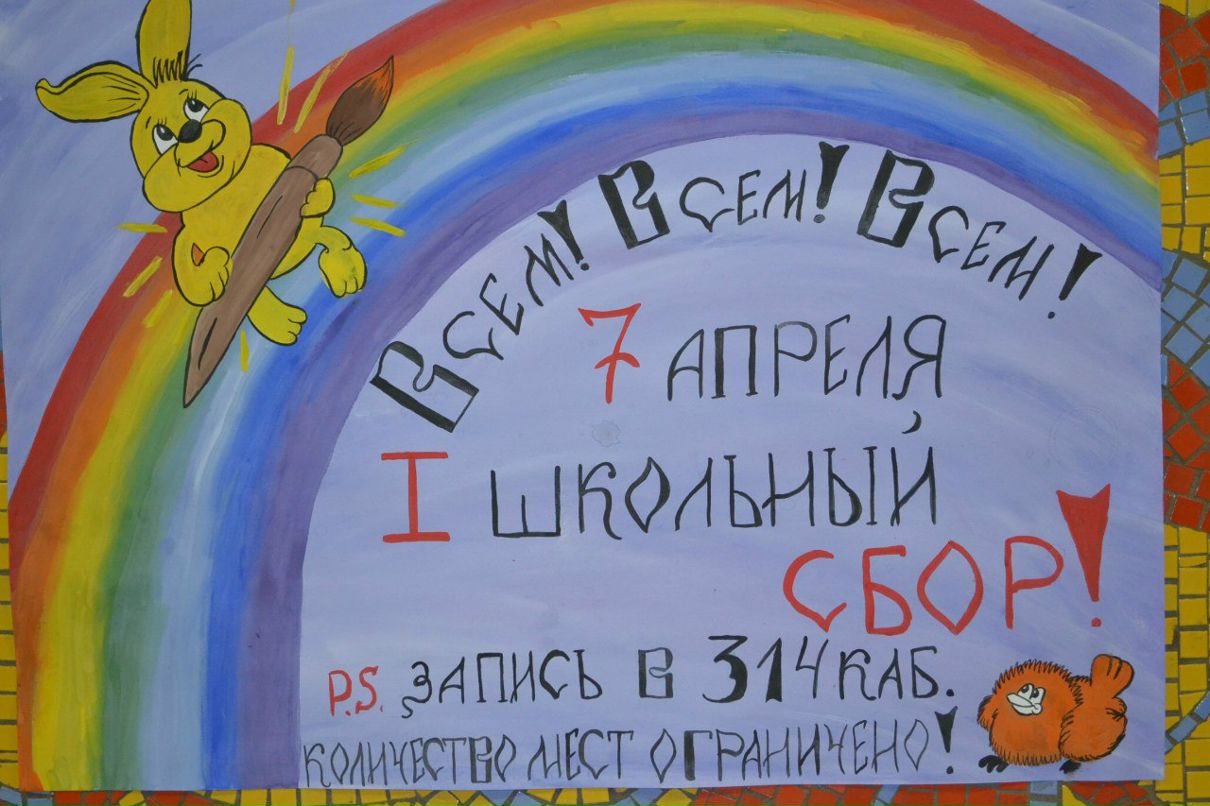 Всем! Всем! Всем!
7 АПРЕЛЯ
I ШКОЛЬНЫЙ
СБОР!
P.S. ЗАПИСЬ В 314 КАБ.
КОЛИЧЕСТВО МЕСТ ОГРАНИЧЕНО!